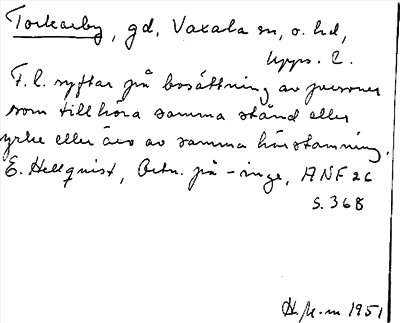 Torkarby, gd, Vaxala sn, o. hd,
Upps. l.
F. l. syftar på bosättning av personer
som tillhöra samma stånd eller
yrke eller äro av samma härstamning.
E. Hellquist, Ortn. på -inge, ANF 26
s. 368
1951